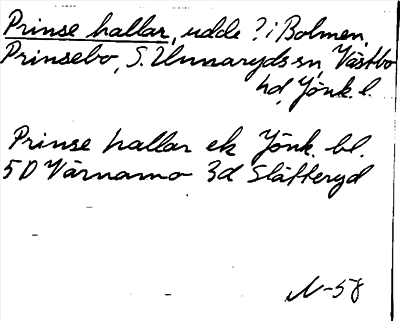 Prinse hallar, udde ? i Bolmen,
Prinsebo, S. Unnaryds sn, Västbo
hd, Jönk. l.
Prinse hallar ek Jönk. bl.
5D Värnamo 3d Slätteryd
N-58